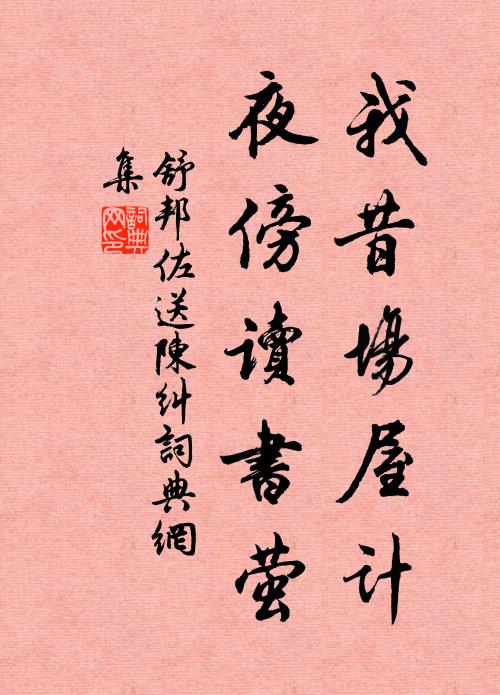 我昔場屋計
夜傍讀書螢
舒邦佐送陳糾詞典網
集
詞典網印